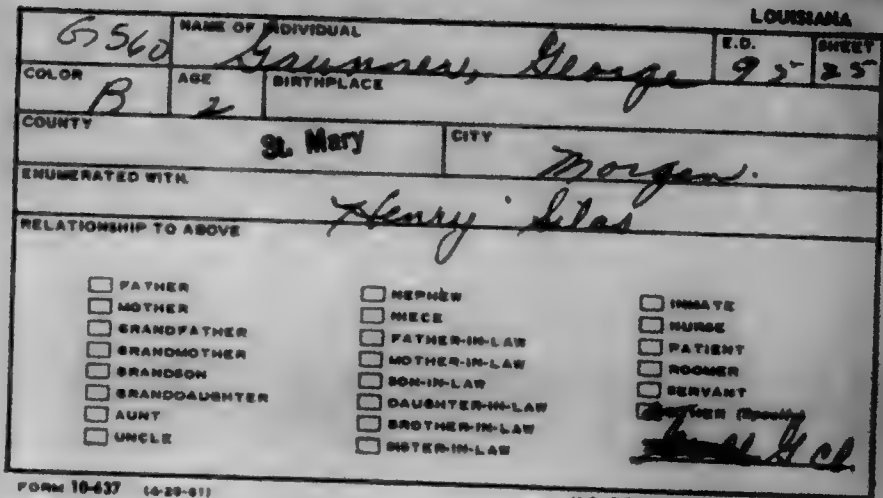 LOUISIANA
G 560 NAME OF INDIVIDUAL E.D. SHEET
George 95 25
COLOR B AGE 2 BIRTHPLACE
COUNTY St. Mary CITY Morgan.
ENUMERATED WITH Henry Silas
RELATIONSHIP TO ABOVE
FATHER
MOTHER
GRANDFATHER
GRANDMOTHER
GRANDSON
GRANDDAUGHTER
AUNT
UNCLE
NEPHEW
NIECE
FATHER-IN-LAW
MOTHER-IN-LAW
SON-IN-LAW
DAUGHTER-IN-LAW
BROTHER-IN-LAW
SISTER-IN-LAW
INMATE
NURSE
PATIENT
ROOMER
SERVANT
OTHER (Specify)
G Ch
FORM 10-637 (6-29-61)